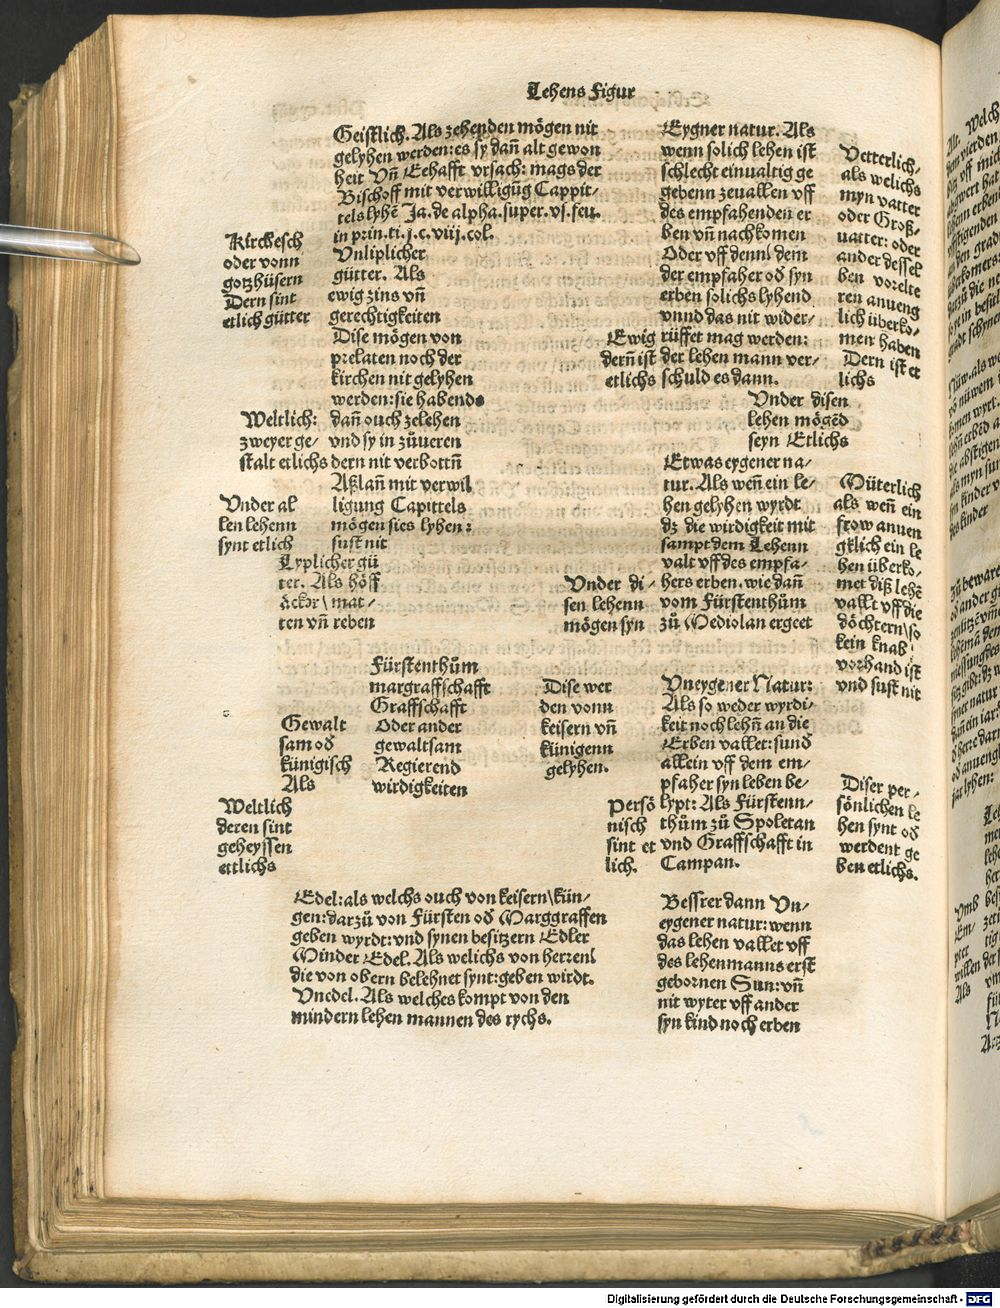 Lehens Figur
Geistlich. Als zehenden mögen nit
gelyhen werden: es sy dañ alt gewon
heit Vñ Eehafft vrsach: mags der
Bischoff mit verwilligũg Cappit/
tels lyhẽ Ja. de alpha. super. vs. feu.
in prin. ti. j. c. viij. col.
Kirchesch
oder vonn
gotzhüsern
Dern sint
etlich gütter
Vnliplicher
gütter. Als
ewig zins vñ
gerechtigkeiten
Dise mögen von
prelaten noch der
kirchen nit gelyhen
werden: sie habend
Weltlich:
zweyer ge/
stalt etlichs
dañ ouch zelehen
vnd sy in zůueren
dern nit verbottñ
Aßlañ mit verwil
ligung Capittels
mögen sies lyhen:
sust nit
Vnder al
len lehenn
synt etlich
Lyplicher gü
ter. Als höff
äcker\ mat/
ten vñ reben
Fürstenthům
margraffschafft
Graffschafft
Oder ander
gewaltsam
Regierend
wirdigkeiten
Gewalt
sam od
künigisch
Als
Dise wer
den vonn
keisern vñ
künigenn
gelyhen.
Weltlich
deren sint
geheyssen
ettlichs
Edel: als welchs ouch von keisern\ kün/
gen: darzů von Fürsten od Marggraffen
geben wyrdt: vnd synen besitzern Edler
Minder Edel. Als welichs von herzenl
die von obern belehnet synt: geben wirdt.
Vnedel. Als welches kompt von den
mindern lehen mannen des rychs.
Eygner natur. Als
wenn solich lehen ist
schlecht einualtig ge
gebenn zeuallen vff
des empfahenden er
ben vñ nachkomen
Oder vff dennl dem
der empfaher od syn
erben solichs lyhend
vnnd das nit wider/
rüffet mag werden:
der lehen mann ver/
schuld es dann.
Ewig
derñ ist
etlichs
Vetterlich,
als welichs
myn vatter
oder Groß/
uatter: oder
ander dessel
ben vorelte
ren anueng
lich überko/
men haben
Dern ist et
lichs
Vnder disen
lehen mögẽd
seyn Etlichs
Etwas eygener na/
tur. Als weñ ein le/
hen gelyhen wyrdt
dz die wirdigkeit mit
sampt dem Lehenn
valt vff des empfa/
hers erben. wie dañ
vom Fürstenthům
zů Mediolan ergeet
Vnder di/
sen lehenn
mögen syn
Můterlich
als weñ ein
frow anuen
gklich ein le
hen überko/
met diß lehẽ
vallt vff die
döchtern\ so
kein knab
vorhand ist
vnd sust nit
Vneygener Natur:
Als so weder wyrdi/
keit noch lehñ an die
Erben vallet: sund
allein vff dem em/
pfaher syn leben be/
lypt: Als Fürstenn/
thům zů Spoletan
vnd Graffschafft in
Campan.
Persö
nisch
sint et
lich.
Diser per/
sönlichen le
hen synt od
werdent ge
ben etlichs.
Bessrer dann Vn/
eygener natur: wenn
das lehen vallet vff
des lehenmanns erst
gebornen Sun: vñ
nit wyter vff ander
syn kind noch erben
Digitalisierung gefördert durch die Deutsche Forschungsgemeinschaft - DFG